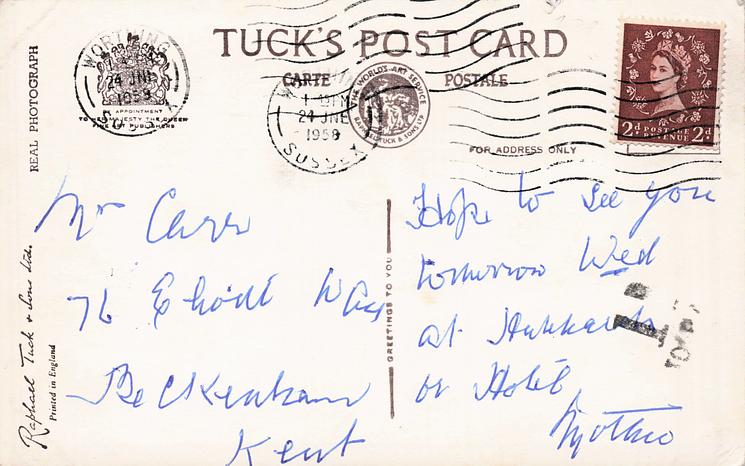 TUCK'S POST CARD
CARTE POSTALE
WORTHING
24 JNE
1958
BY APPOINTMENT
TO HER MAJESTY THE QUEEN
FINE ART PUBLISHERS
1 PM
24 JNE
1958
SUSSEX
THE WORLD'S ART SERVICE
RAPHAEL TUCK & SONS LTD
2d POSTAGE REVENUE 2d
FOR ADDRESS ONLY
REAL PHOTOGRAPH
Raphael Tuck & Sons Ltd.
Printed in England
Mrs Carr
76
Beckenham
Kent
GREETINGS TO YOU
Hope to see you
tomorrow Wed
at
or Hotel
Mother